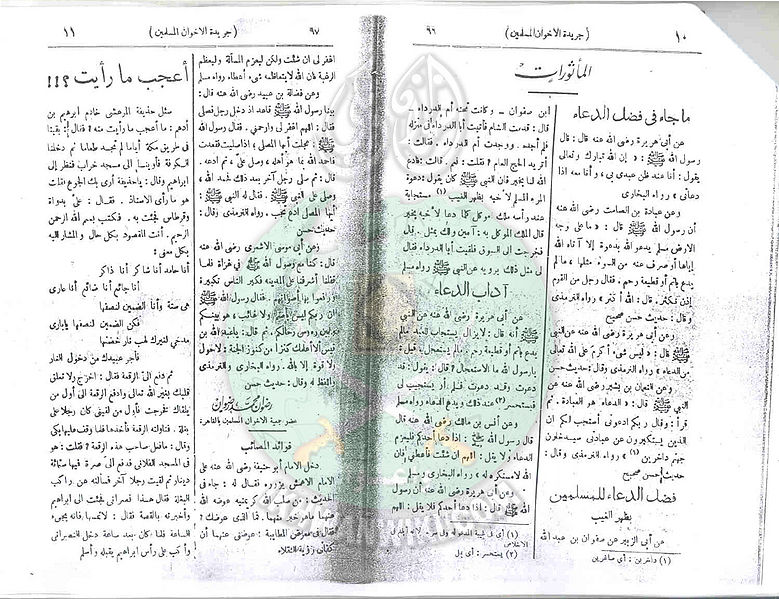 ١٠
( جريدة الاخوان المسلمين )
٩٦
المأثورات
ما جاء فى فضل الدعاء
عن أبى هريرة رضى الله عنه قال : قال
رسول الله ﷺ : « إن الله تبارك وتعالى
يقول : أنا عند ظن عبدى بى ، وأنا معه اذا
دعانى » رواه البخارى
وعن عبادة بن الصامت رضى الله عنه
أن رسول الله ﷺ قال : « ما على وجه
الارض مسلم يدعو الله بدعوة إلا آتاه الله
إياها أو صرف عنه من السوء مثلها ، ما لم
يدع بإثم أو قطيعة رحم . فقال رجل من القوم
إذن نكثر . قال : الله أكثر » رواه الترمذى
وقال : حديث حسن صحيح
وعن أبى هريرة رضى الله عنه عن النبى
ﷺ قال : « ليس شىء أكرم على الله تعالى
من الدعاء » رواه الترمذى وقال : حديث حسن
وعن النعمان بن بشير رضى الله عنه عن
النبى ﷺ قال : « الدعاء هو العبادة . ثم
قرأ : وقال ربكم ادعونى أستجب لكم ان
الذين يستكبرون عن عبادتى سيدخلون
جهنم داخرين (١) » رواه الترمذى وقال :
حديث حسن صحيح
فضل الدعاء للمسلمين
بظهر الغيب
عن أبى الزبير عن صفوان بن عبد الله
(١) داخرين : أى صاغرين
ابن صفوان ـ وكانت تحته أم الدرداء ـ
قال : قدمت الشام فأتيت أبا الدرداء فى منزله
فلم أجده . ووجدت أم الدرداء . فقالت :
أتريد الحج العام ؟ فقلت : نعم . قالت : فادع
الله لنا بخير فان النبى ﷺ كان يقول : دعوة
المرء المسلم لأخيه بظهر الغيب (١) مستجابة
عند رأسه ملك موكل كلما دعا لأخيه بخير
قال الملك الموكل به : آمين ولك بمثل . قال
فخرجت الى السوق فلقيت أبا الدرداء فقال
لى مثل ذلك يرويه عن النبى ﷺ رواه مسلم
آداب الدعاء
عن أبى هريرة رضى الله عنه عن النبى
ﷺ أنه قال : لا يزال يستجاب للعبد ما لم
يدع بإثم أو قطيعة رحم ، ما لم يستعجل . قيل :
يارسول الله ما الاستعجال ؟ قال : يقول : قد
دعوت وقد دعوت فلم أر يستجيب لى
فيستحسر (٢) عند ذلك ويدع الدعاء رواه مسلم
وعن أنس بن مالك رضى الله عنه قال
قال رسول الله ﷺ : اذا دعا أحدكم فليعزم
الدعاء ولا يقل : اللهم ان شئت فأعطنى فإن
الله لا مستكره له » رواه البخارى ومسلم
وعن أبى هريرة رضى الله عنه أن رسول
الله ﷺ قال : اذا دعا أحدكم فلا يقل : اللهم
(١) أى فى غيبة المدعو له
(٢) يستحسر : أى يمل
٩٧
( جريدة الاخوان المسلمين )
١١
اغفر لى ان شئت ولكن ليعزم المسألة وليعظم
الرغبة فان الله لا يتعاظمه شىء أعطاه رواه مسلم
وعن فضالة بن عبيد رضى الله عنه قال
بينا رسول الله ﷺ قاعد إذ دخل رجل فصلى
فقال : اللهم اغفر لى وارحمنى . فقال رسول الله
ﷺ : عجلت أيها المصلى ، إذا صليت فقعدت
فاحمد الله بما هو أهله ، وصل علىّ ، ثم ادعه .
قال : ثم صلى رجل آخر بعد ذلك فحمد الله ،
وصلى على النبى ﷺ . فقال له النبى ﷺ :
أيها المصلى ادع تجب . رواه الترمذى وقال :
حديث حسن
وعن أبى موسى الاشعرى رضى الله عنه
قال : كنا مع رسول الله ﷺ فى غزاة فلما
قفلنا أشرفنا على المدينة فكبر الناس تكبيرة
ورفعوا بها أصواتهم . فقال رسول الله ﷺ
ان ربكم ليس بأصم ولا غائب ، هو بينكم
وبين رءوس رحالكم . ثم قال : ياعبد الله بن
قيس ألا أعلمك كنزا من كنوز الجنة : لا حول
ولا قوة إلا بالله . رواه البخارى والترمذى
واللفظ له وقال : حديث حسن
رضوان محمد رضوان
عضو جمعية الاخوان المسلمين بالقاهرة
فوائد المصائب
دخل الامام أبو حنيفة رضى الله عنه على
الامام الاعمش يزوره فقال له : جاء فى
الحديث : من سلب الله كريمتيه عوضه الله
عنهما ما هو خير منهما . فما الذى عوضك ؟
فقال فى معرض المطايبة : عوضنى عنهما أن
كفانى رؤية الثقلاء
أعجب ما رأيت ؟!!
سئل حذيفة المرعشى خادم ابرهيم بن
أدهم : ما أعجب ما رأيت منه ؟ فقال : بقينا
فى طريق مكة أياما لم نجد طعاما ثم دخلنا
الكوفة فأوينا الى مسجد خراب فنظر إلى
ابراهيم وقال : ياحذيفة أرى بك الجوع فقلت
هو ما رأى الاستاذ . فقال : علىّ بدواة
وقرطاس فجئت به . فكتب بسم الله الرحمن
الرحيم . أنت المقصود بكل حال والمشار اليه
بكل معنى :
أنا حامد أنا شاكر أنا ذاكر
أنا جائع أنا ضائع أنا عارى
هى ستة وأنا الضمين لنصفها
فكن الضمين لنصفها يابارى
مدحى لغيرك لهب نار خضتها
فأجر عبيدك من دخول النار
ثم دفع الىّ الرقعة فقال : اخرج ولا تعلق
قلبك بغير الله تعالى وادفع الرقعة الى أول من
يلقاك فخرجت فأول من لقينى كان رجلا على
بغلة . فناولته الرقعة فأخذها فلما وقف عليها بكى
وقال : ما فعل صاحب هذه الرقعة ؟ فقلت : هو
فى المسجد الفلانى فدفع الى صرة فيها ستمائة
دينار ثم لقيت رجلا آخر فسألته عن راكب
البغلة فقال هذا نصرانى فجئت الى ابراهيم
وأخبرته بالقصة فقال : لا تمسها فانه يجىء
الساعة فلما كان بعد ساعة دخل النصرانى
وأكب على رأس ابراهيم يقبله وأسلم